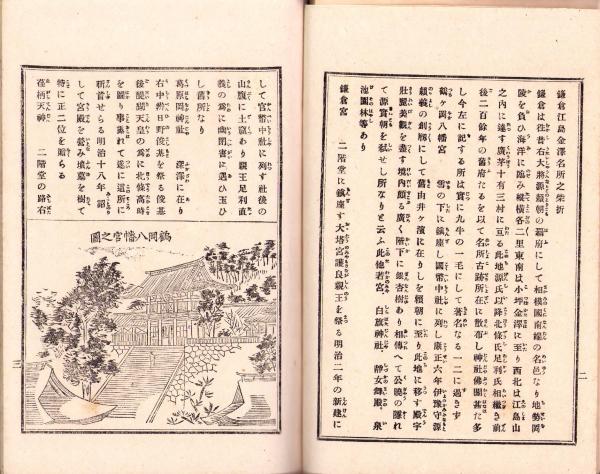 鎌倉江島金澤名所之栞折
鎌倉は往昔右大將源頼朝の覇府にして相模國南端の名邑なり地勢岡
陵を負ひ海洋に臨み縱横各二里東南は小坪金澤に至り西北は江島山
之内に達す廣茅十有三村に亘る此地源氏以降北條氏足利氏相繼き前
後二百餘年の舊府たるを以て名所古跡所在に散布し神社佛閣甚た多
し今左に記する所は實に九牛の一毛にして著名なる一二に過きす
鶴ヶ岡八幡宮 雪の下に鎮座し國幣中社に列し康正六年伊豫守源
頼義の創剏にして舊由井ヶ濱に在りしを頼朝に至り此地に移す殿宇
壯麗美觀を盡す境内頗る廣く階下に銀杏樹あり相傳へて公曉の隱れ
て源實朝を弑せし所なりと云ふ此他若宮、白旗神社、靜女舞殿、泉
池園林等あり
鎌倉宮 二階堂に鎮座す大塔宮護良親王を祭る明治二年の新建に
二
して官幣中社に列す社後の
山腹に土窟あり親王足利直
義の爲に幽閉害に遇ひ玉ひ
し舊所なり
葛原岡神社 深澤に在り
右中辨日野俊基を祭る俊基
後醍醐天皇の爲に北條高時
を圖り事露れて遂に這所に
斬首せらる明治十八年 詔
して宮殿を營み墳墓を樹て
特に正二位を贈る
荏柄天神 二階堂の路右
鶴岡八幡宮之圖
三